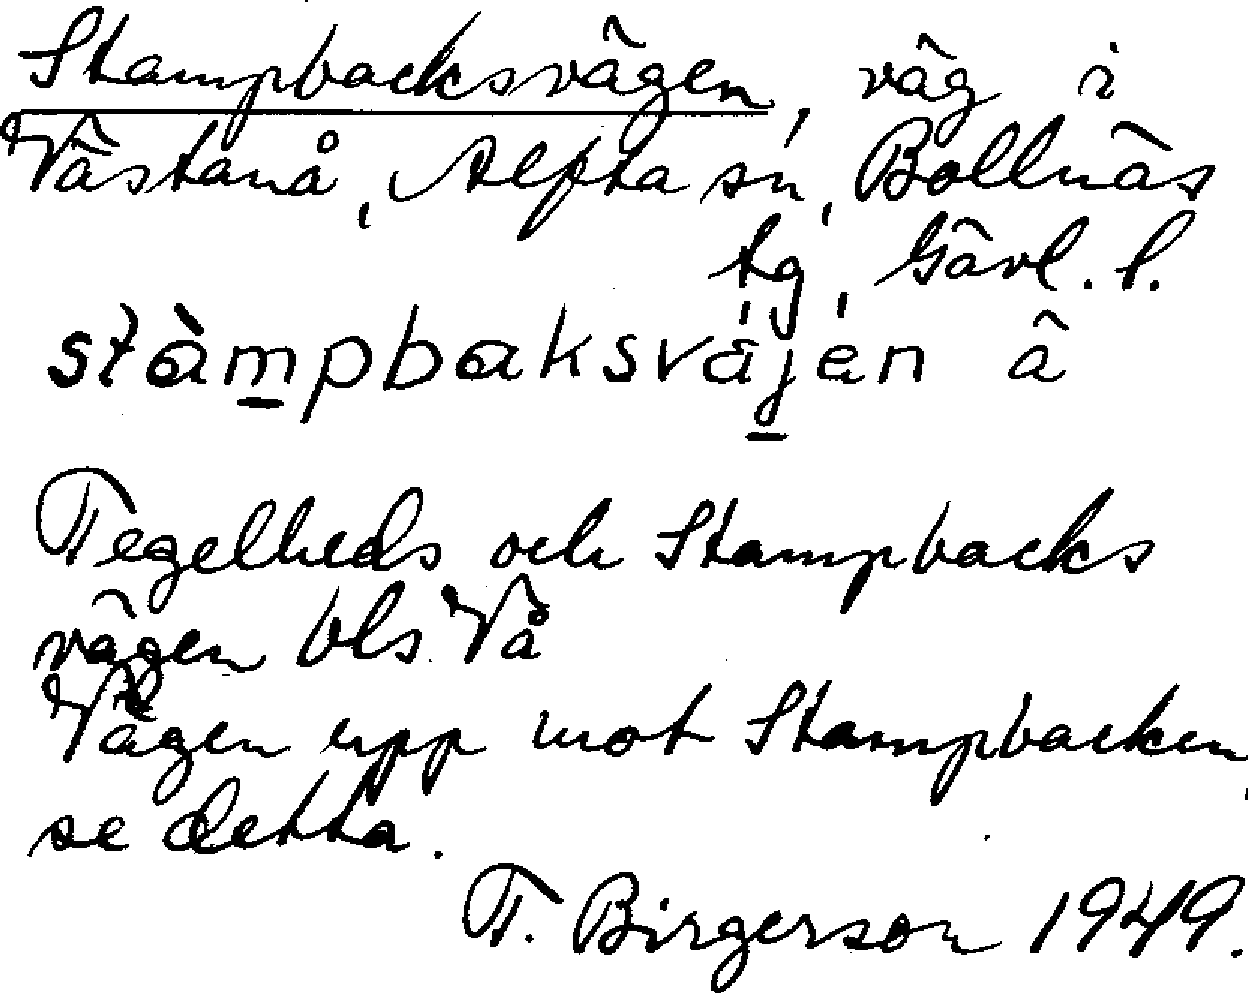 Stampbacksvägen, väg i
Västanå, Alfta sn, Bollnäs
tg, Gävl. l.
stàmpbaksvájén â
Tegelheds och Stampbacks
vägen bls Vå
Vägen upp mot Stampbacken,
se detta.
T. Birgerson 1949.